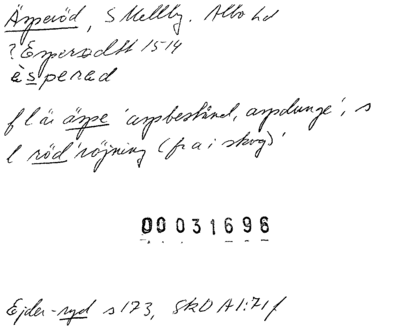 Äsperöd, S Mellby. Albo hd
? Espersødtt 1514
àsperad
f l är äspe 'aspbestånd, aspdunge', s
l röd 'röjning (fr a i skog)'
00031696
Ejder-ryd s 173, SkO A1:71 f